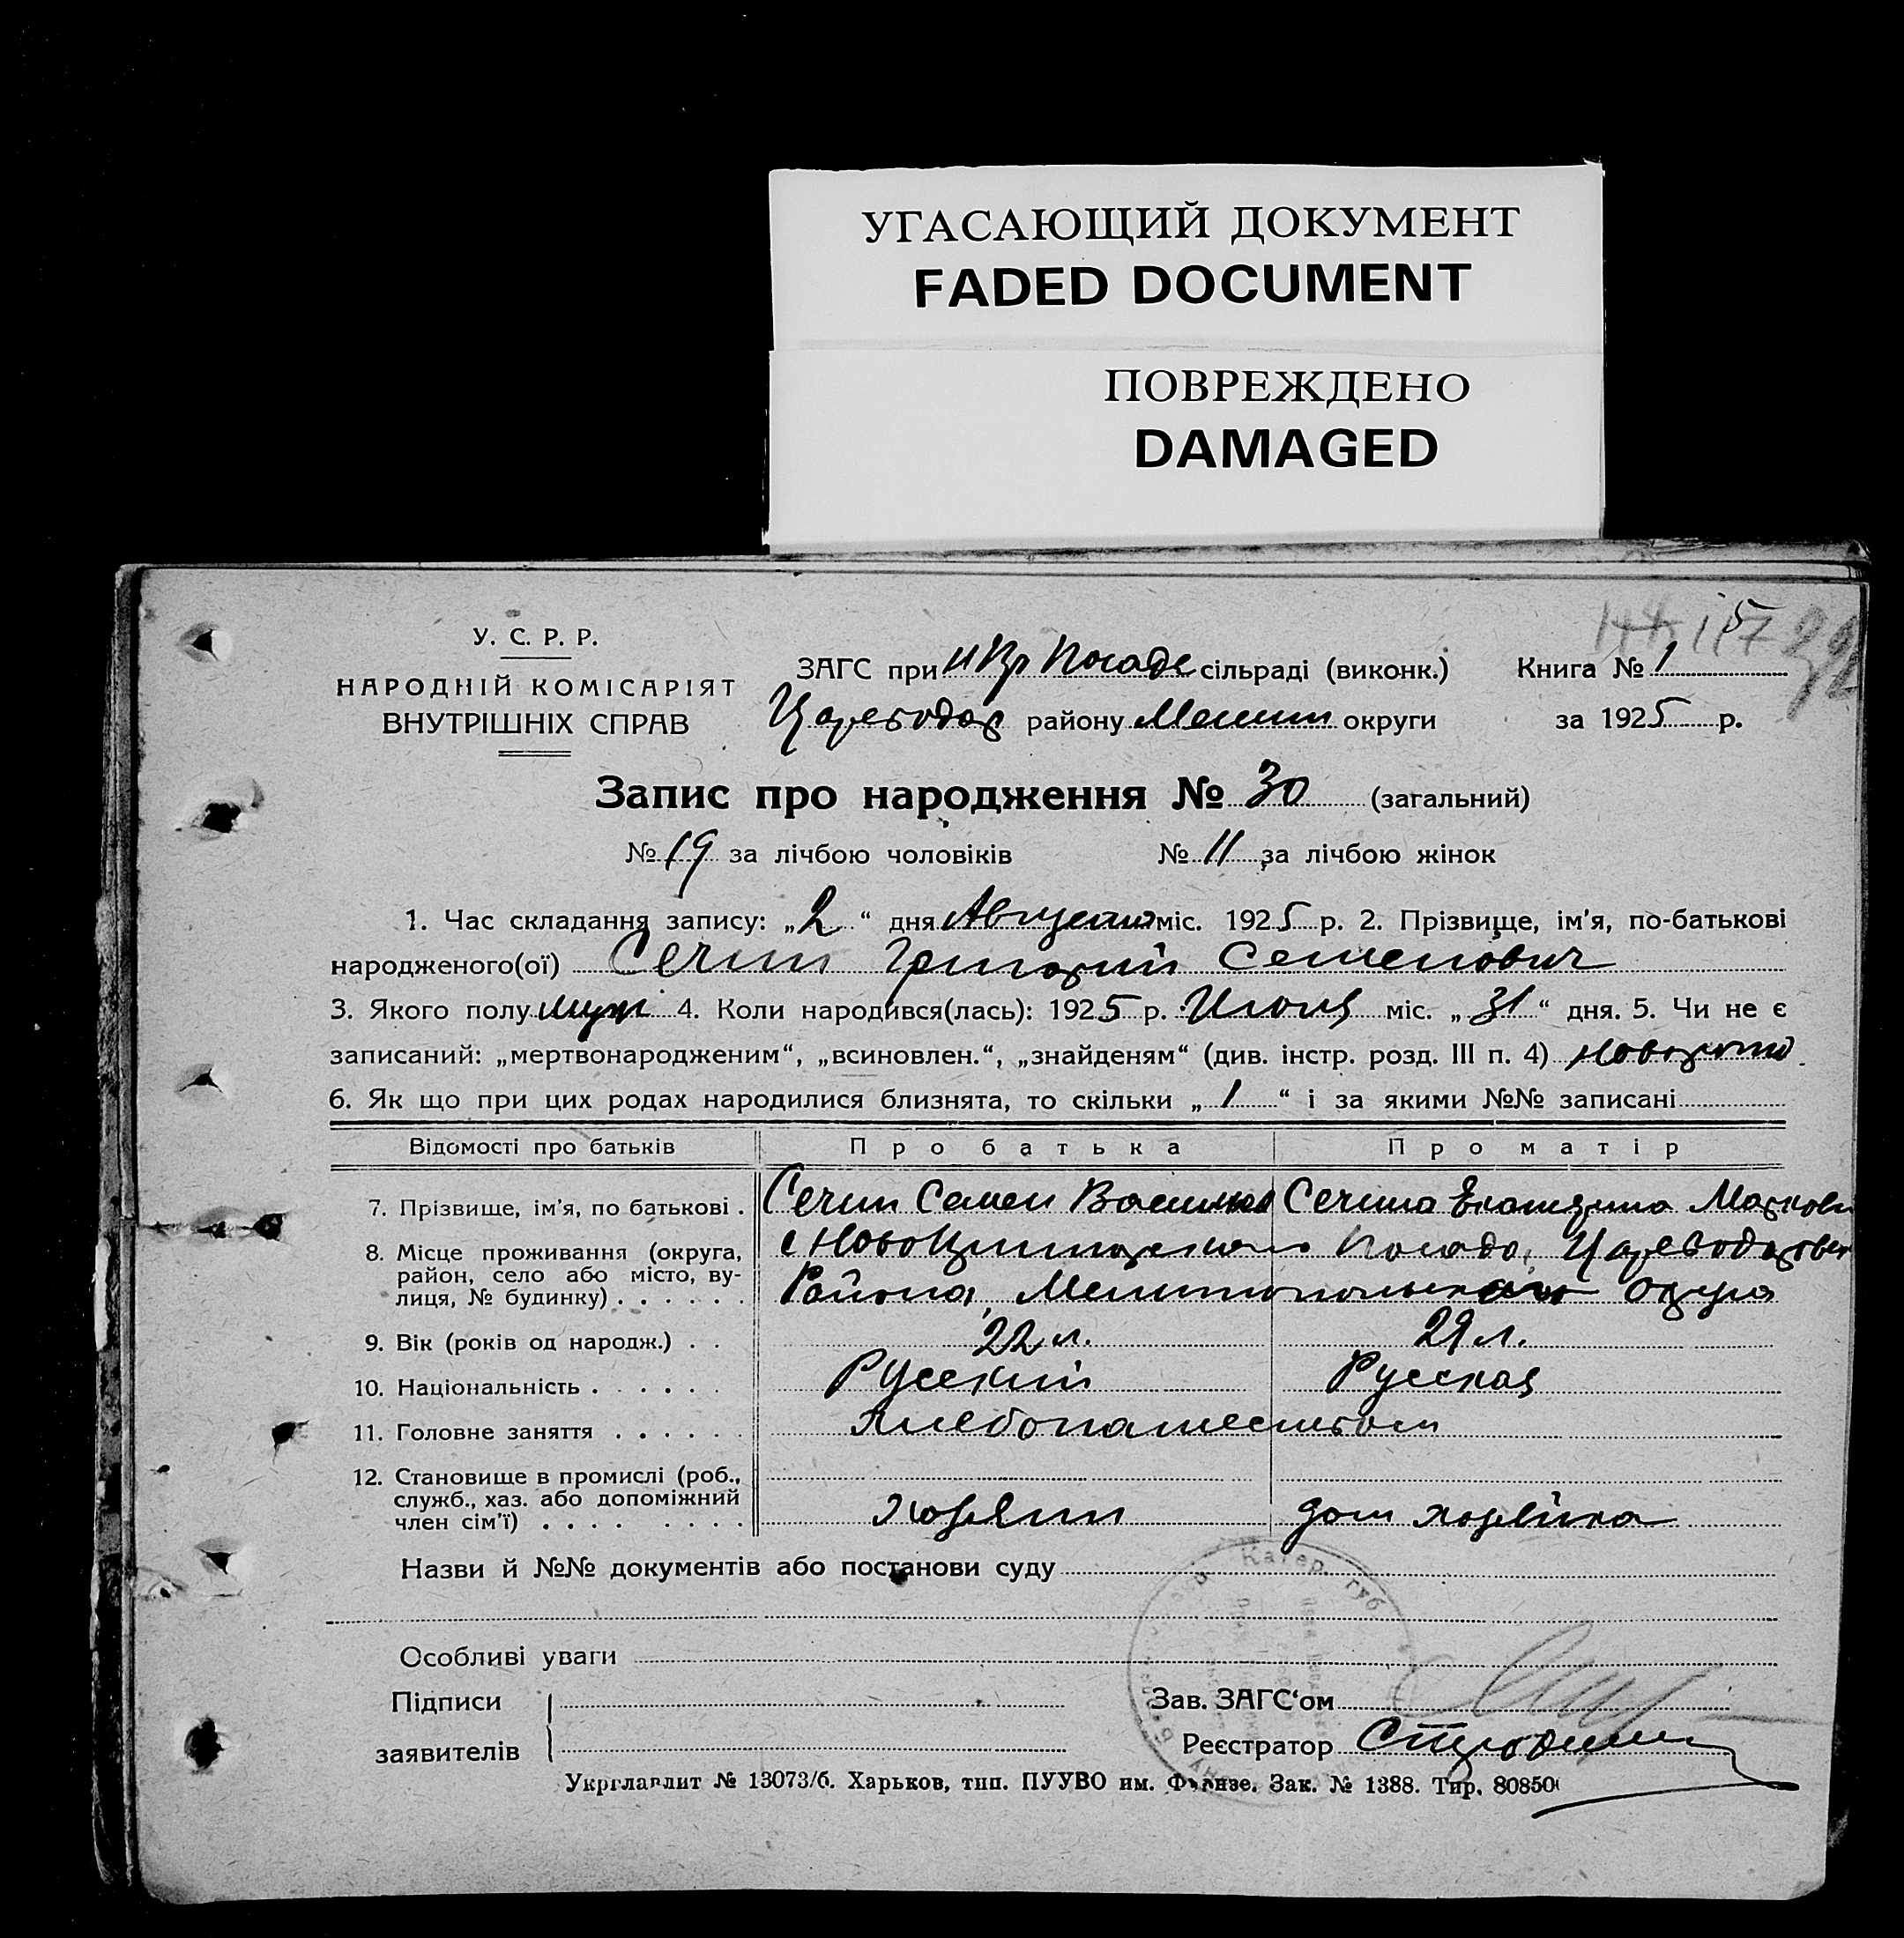 УГАСАЮЩИЙ ДОКУМЕНТ
FADED DOCUMENT
ПОВРЕЖДЕНО
DAMAGED
У. С. Р. Р.
НАРОДНІЙ КОМІСАРІЯТ
ВНУТРІШНІХ СПРАВ
ЗАГС при Н Кр Посаде сільраді (виконк.) Книга № 1
Цареводар району Мелит округи за 1925 р.
Запис про народження № 30 (загальний)
№ 19 за лічбою чоловіків № 11 за лічбою жінок
1. Час складання запису: „2“ дня Августа міс. 1925 р. 2. Прізвище, ім'я, по-батькові
народженого(ої) Сечин Григорий Семенович
3. Якого полу муж 4. Коли народився(лась): 1925 р. Июля міс. „31“ дня. 5. Чи не є
записаний: „мертвонародженим“, „всиновлен.“, „знайденям“ (див. інстр. розд. III п. 4)
6. Як що при цих родах народилися близнята, то скільки „1“ і за якими №№ записані
Відомості про батьків Про батька Про матір
7. Прізвище, ім'я, по батькові . Сечин Семен Василь Сечина Екатерина Маркови
8. Місце проживання (округа, Посада, Цареводаров
район, село або місто, ву-
лиця, № будинку) . . . . . . Района, Мелитопольского Округа
9. Вік (років од народж.) . . 22 л. 29 л.
10. Національність . . . . . . Русский Русская
11. Головне заняття . . . . . . Хлебопашеством
12. Становище в промислі (роб.,
служб., хаз. або допоміжний
член сім'ї) . . . . . . . . Хозяин дом хозяйка
Назви й №№ документів або постанови суду
Катер. губ.
Особливі уваги
Підписи Зав. ЗАГС‘ом
заявителів Реєстратор
Укрглавлит № 13073/б. Харьков, тип. ПУУВО им. Фрунзе. Зак. № 1388. Тир. 80850